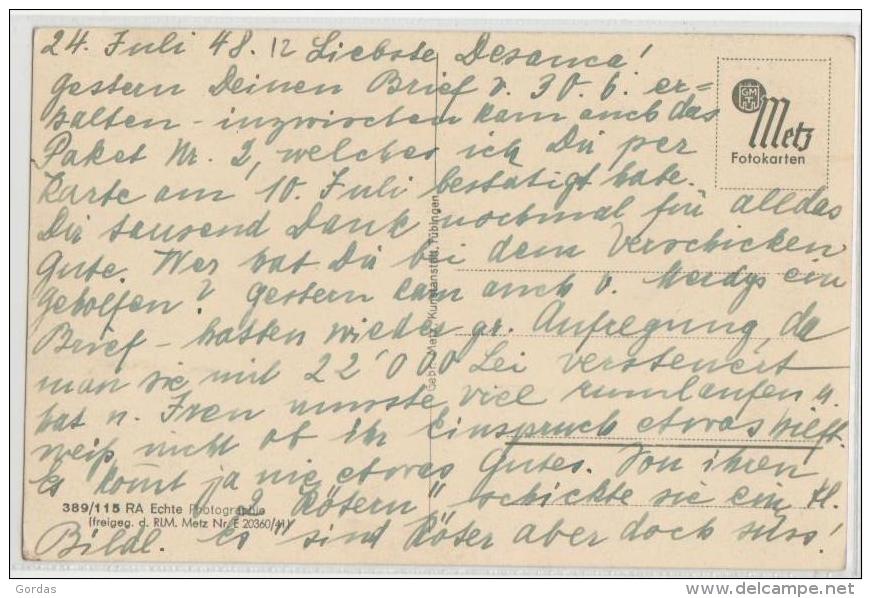 24. Juli 48. 12 Liebste Desanca!
gestern Deinen Brief v. 30.6. er=
halten - inzwischen kam auch das
Paket Nr. 2, welches ich Dir per
Karte am 10. Juli bestätigt habe.
Dir tausend Dank nochmal für alldas
Gute. Wer hat Dir bei dem Verschicken
geholfen? Gestern kam auch v. ein
Brief - hatten wieder gr. Aufregung, da
man sie mit 22'000 Lei versteuert
hat u. musste viel rumlaufen u.
weiß nicht ob ihr Einspruch etwas hilft.
Es kommt ja nie etwas Gutes. Von ihren
2 "Kötern" schickte sie ein kl.
Bildl. Es sind Köter aber doch süss!
GM
Metz
Fotokarten
Gebr. Metz, Kunstanstalt, Tübingen
389/115 RA Echte Photographie
(freigeg. d. RLM. Metz Nr. E 20360/41)
Gordas
delcampe.net